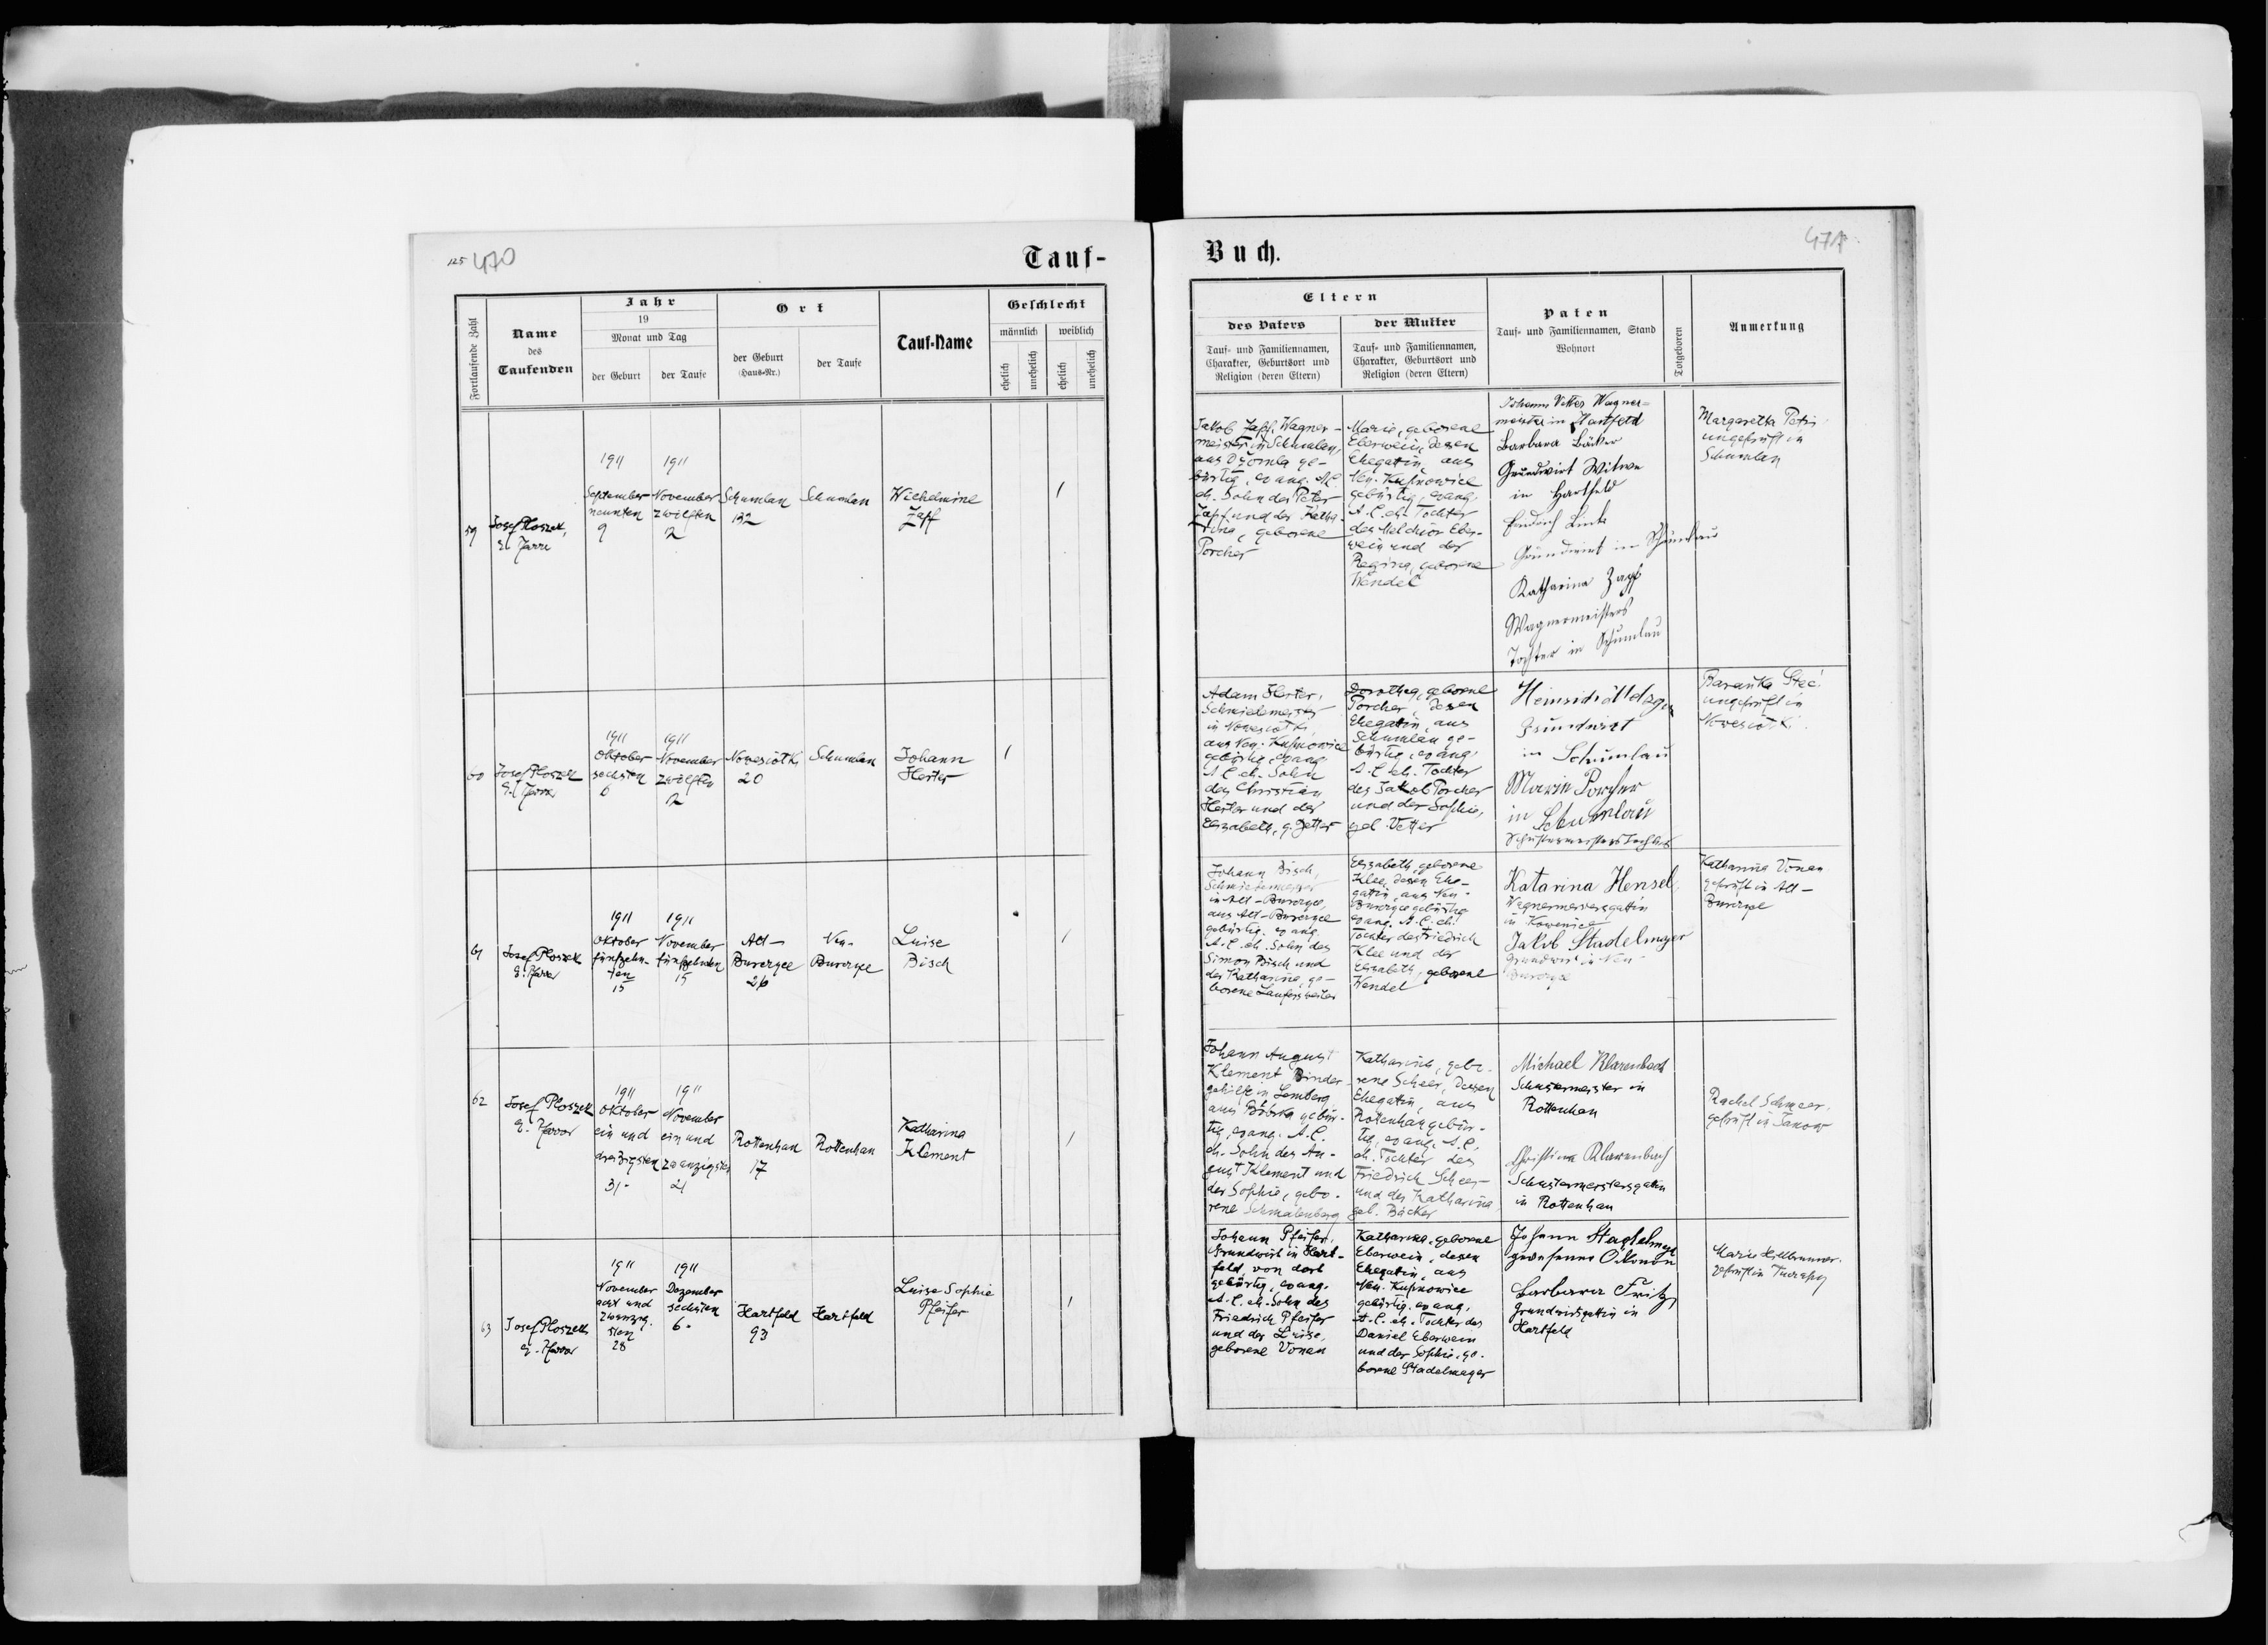 125 470
Tauf-
Fortlaufende Zahl
Name
des
Taufenden
Jahr
19
Monat und Tag
der Geburt
der Taufe
Ort
der Geburt
(Haus-Nr.)
der Taufe
Tauf-Name
Geschlecht
männlich
weiblich
ehelich
unehelich
ehelich
unehelich
59
Josef Ploszek,
1911
September
neunten
9
1911
November
zwölften
12
Schumlau
132
Schumlau
Wilhelmine
Zapf
1
60
Josef Ploszek
1911
Oktober
sechsten
6
1911
November
zwölften
12
Nowesiolki
20
Schumlau
Johann
Herter
1
61
Josef Ploszek
1911
Oktober
fünfzehn-
ten
15
1911
November
fünfzehnten
15
Alt-
Burczyce
26
Neu-
Burczyce
Luise
Bisch
1
62
Josef Ploszek
1911
Oktober
ein und
dreizigsten
31.
1911
November
ein und
zwanzigsten
21
Rottenhan
17
Rottenhan
Katharina
Klement
1
63
Josef Ploszek
1911
November
acht und
zwanzig.
sten
28
1911
Dezember
sechsten
6.
Hartfeld
93
Hartfeld
Luise Sophie
Pfeifer
1
Buch.
471
Eltern
des Vaters
Tauf- und Familiennamen,
Charakter, Geburtsort und
Religion (deren Eltern)
der Mutter
Tauf- und Familiennamen,
Charakter, Geburtsort und
Religion (deren Eltern)
Paten
Tauf- und Familiennamen, Stand
Wohnort
Totgeboren
Anmerkung
Jakob Zapf, Wagner-
meister in Schumlau,
aus ge-
bürtig, evang. A.C.
eh. Sohn des Peter
Zapf und der Katha-
rina, geborene
Porcher
Marie, geborene
Eberwein, dessen
Ehegattin, aus
Neu-Kupnowice
gebürtig, evang.
A.C. eh. Tochter
des Melchior Eber-
wein und der
Regina, geborene
Wendel
Johann Vetter Wagner=
meister in Hartfeld
Barbara Bäcker
Grundwirt Witwe
in Hartfeld
Link
Grundwirt in Schumlau
Katharina Zapf
Wagnermeisters
Tochter in Schumlau
Margaretha
ungeprüft in
Schumlau
Adam Herter,
Schmiedemeister
in Nowesiolki,
aus Neu-Kupnowice
gebürtig, evang.
A.C. eh. Sohn
des Christian
Herter und der
Elisabeth, g. Jetter
Dorothea, geborene
Porcher, dessen
Ehegattin, aus
Schumlau ge-
bürtig, evang.
A.C. eh. Tochter
des Jakob Porcher
und der Sophie,
geb. Vetter
Grundwirt
in Schumlau
Marie Porcher
in Schumlau
Schustermeisters Tochter
Baranka Stec
ungeprüft in
Nowesiolki
Johann Bisch,
Schmiedemeister
in Alt-Burczyce,
aus Alt-Burczyce
gebürtig, evang.
A.C. eh. Sohn des
Simon Bisch und
der Katharina, ge-
borene Laufersweiler
Elisabeth, geborene
Klee, dessen Ehe-
gattin, aus Neu-
Burczyce gebürtig
evang. A.C. eh.
Tochter des Friedrich
Klee und der
Elisabeth, geborene
Wendel
Katarina Hensel,
Wagnermeistersgattin
in
Jakob Stadelmayer
Grundwirt in Neu-
Burczyce
Katharina Vonau
geprüft in Alt-
Burczyce
Johann August
Klement Binder-
gehilfe in Lemberg,
aus Bóbrka gebür-
tig, evang. A.C.
eh. Sohn des Au-
gust Klement und
der Sophie, gebo-
rene Schmalenberg
Katharina, gebo-
rene Scheer, dessen
Ehegattin, aus
Rottenhan gebür-
tig, evang. A.C.
eh. Tochter des
Friedrich Scheer
und der Katharina,
geb. Bäcker
Michael Klarenbach
Schustermeister in
Rottenhan
Christina Klarenbach
Schustermeistersgattin
in Rottenhan
Rachel Schmeer,
geprüft in Janow
Johann Pfeifer,
Grundwirt in Hart-
feld, von dort
gebürtig, evang.
A.C. eh. Sohn des
Friedrich Pfeifer
und der Luise,
geborene Vonau
Katharina, geborene
Eberwein, dessen
Ehegattin, aus
Neu-Kupnowice
gebürtig, evang.
A.C. eh. Tochter des
Daniel Eberwein
und der Sophie, ge-
borene Stadelmayer
Johann Stadelmayer
gewesener Ökonom
Barbara Fritz,
Grundwirtsgattin in
Hartfeld
Marie
geprüft in